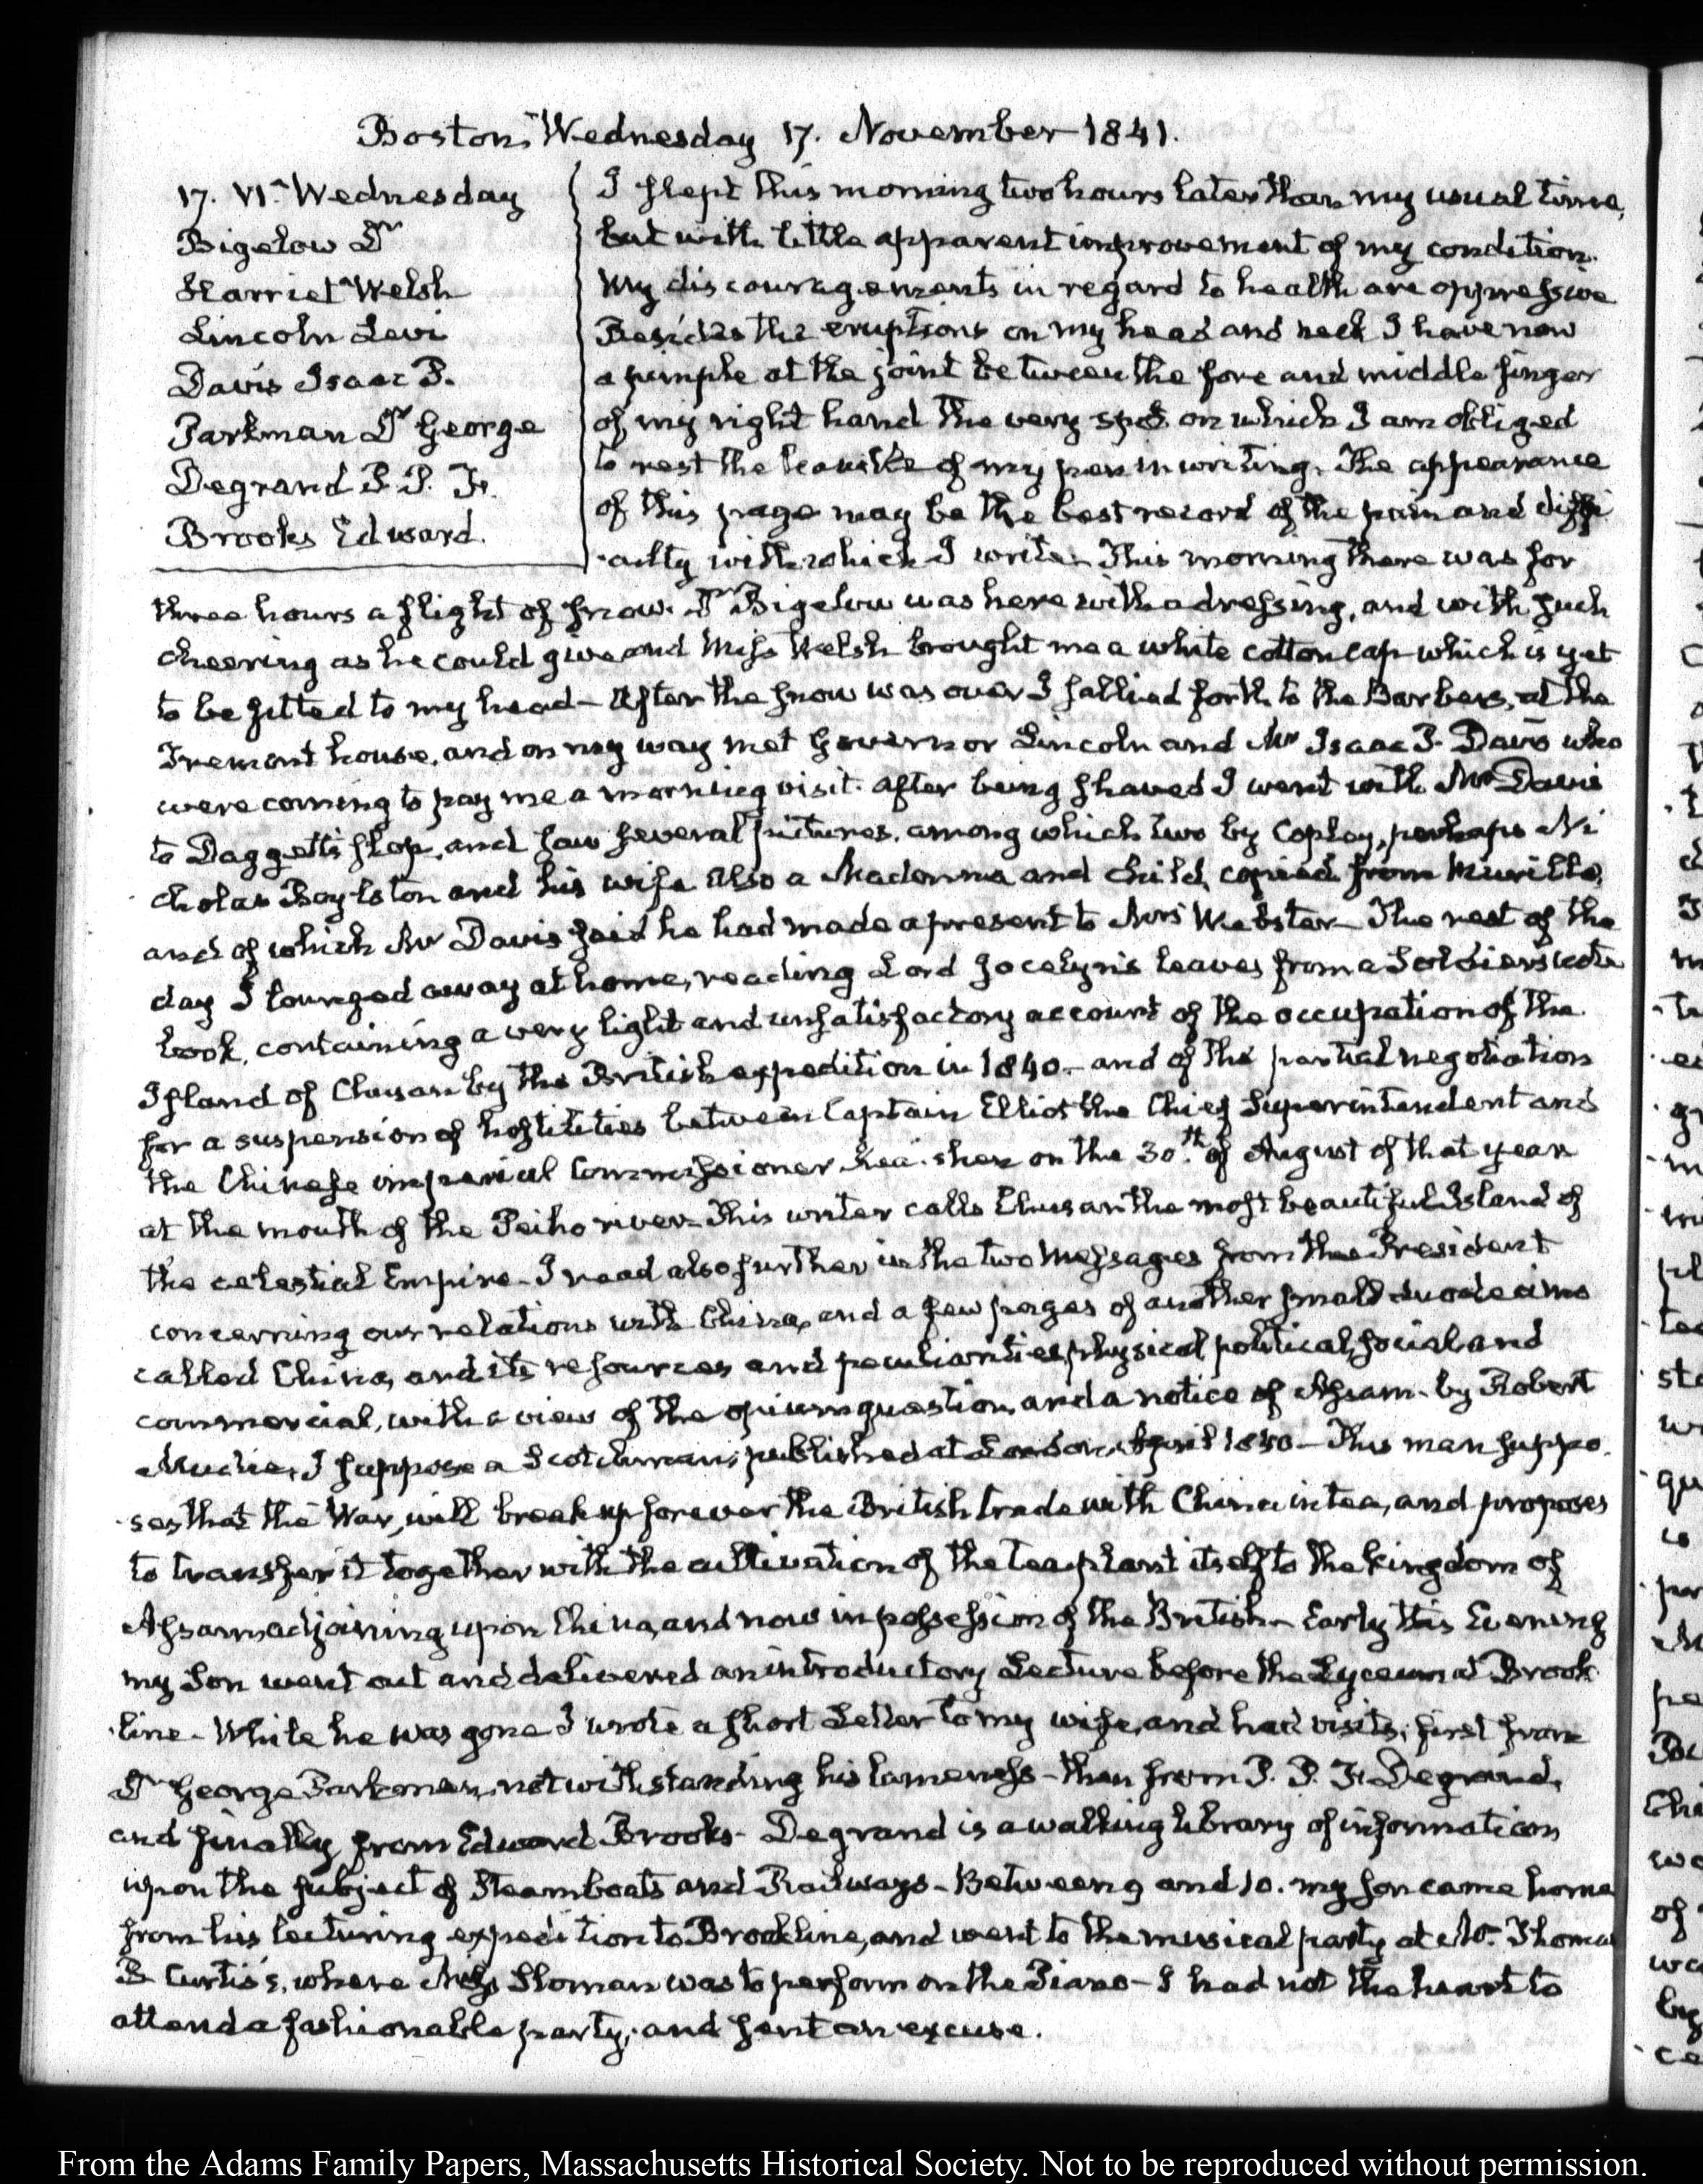 Boston, Wednesday 17. November 1841.
17. VI. Wednesday
Bigelow Dr
Harriet Welsh
Lincoln Levi
Davis Isaac P.
Parkman Dr George
Degrand P. P. F.
Brooks Edward.
I slept this morning two hours later than my usual time,
but with little apparent improvement of my condition.
My discouragements in regard to health are oppressive
Besides the eruptions on my head and neck I have now
a pimple at the joint between the fore and middle finger
of my right hand the very spot on which I am obliged
to rest the of my pen in writing. The appearance
of this page may be the best record of the pain and diffi
-culty with which I write. This morning there was for
three hours a flight of snow. Dr Bigelow was here with a dressing, and with such
cheering as he could give and Miss Welsh brought me a white cotton cap which is yet
to be fitted to my head – After the snow was over I sallied forth to the Barbers, at the
Tremont house, and on my way met Governor Lincoln and Mr Isaac P. Davis who
were coming to pay me a morning visit. after being shaved I went with Mr Davis
to Daggett's shop, and saw several pictures, among which two by Copley, perhaps Ni
cholas Boylston and his wife also a Madonna and Child, copied from Murillo,
and of which Mr Davis said he had made a present to Mrs Webster – The rest of the
day I lounged away at home, reading Lord Jocelyn's leaves from a Soldiers note
book, containing a very light and unsatisfactory account of the occupation of the
Island of Chusan by the British expedition in 1840 – and of the partial negotiation
for a suspension of hostilities between Captain Elliot the Chief Superintendent and
the Chinese imperial Commissioner Kea-shen on the 30th of August of that year
at the mouth of the Peiho river – This writer calls Chusan the most beautiful Island of
the celestial Empire – I read also further in the two Messages from the President
concerning our relations with China, and a few pages of another small duodecimo
called China, and its resources and peculiarities, physical political, social and
commercial, with a view of the opium question, and a notice of Assam – by Robert
Mudie, I suppose a Scotchman; published at London, April 1840 – This man suppo
-ses that the War, will break up forever the British trade with China in tea, and proposes
to transfer it together with the cultivation of the tea plant itself to the kingdom of
Assam adjoining upon China, and now in possession of the British – Early this Evening
my Son went out and delivered an introductory Lecture before the Lyceum at Brook
-line – While he was gone I wrote a short Letter to my wife, and had visits; first from
Dr George Parkman, notwithstanding his lameness – then from P. P. F. Degrand,
and finally from Edward Brooks – Degrand is a walking library of information
upon the subject of Steamboats and Railways – Between 9 and 10. my son came home
from his lecturing expedition to Brookline, and went to the musical party at Mr Thomas
B Curtis's, where Miss Sloman was to perform on the Piano – I had not the heart to
attend a fashionable party, and sent an excuse.
From the Adams Family Papers, Massachusetts Historical Society. Not to be reproduced without permission.